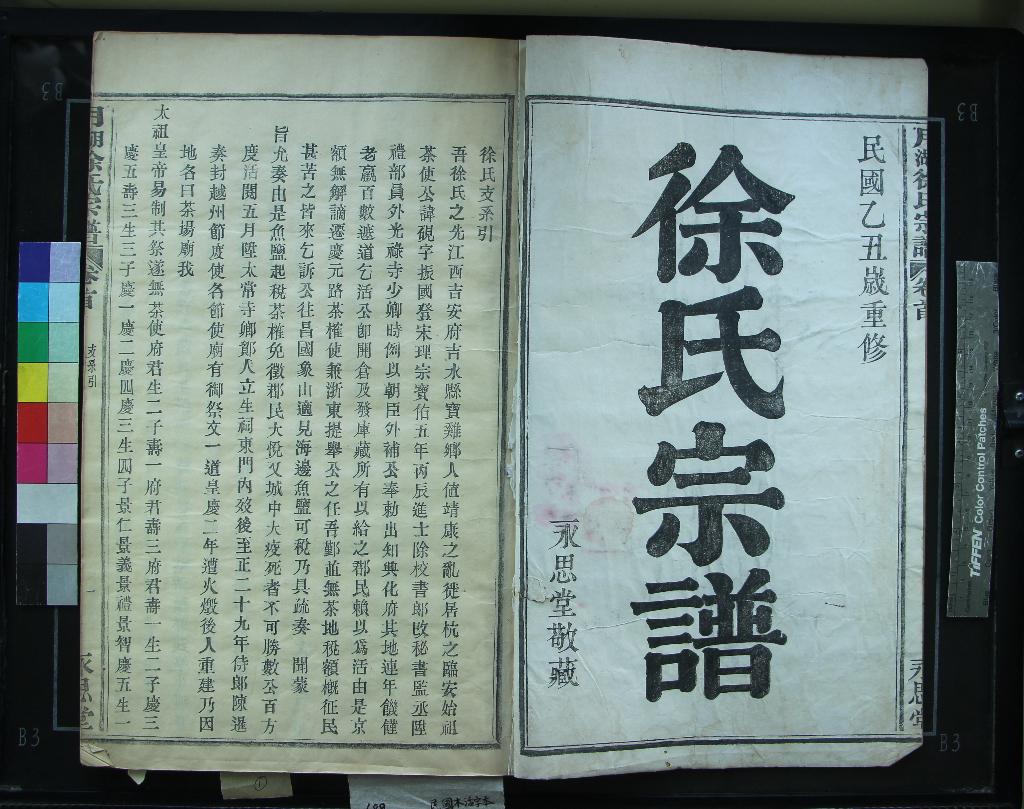 民國乙丑嵗重修
徐氏宗譜
永思堂敬藏
徐氏支系引
吾徐氏之先江西吉安府吉水縣寶雞鄉人值靖康之亂徙居杭之臨安始祖
茶使公諱硯字振國登宋理宗寶佑五年丙辰進士除校書郎改秘書監丞陞
禮部員外光祿寺少卿時例以朝臣外補公奉勅出知興化府其地連年饑饉
老羸百數遮道乞活公即開倉及發庫藏所有以給之郡民賴以爲活由是京
額無解謫遷慶元路茶榷使兼浙東提舉公之任吾鄞並無茶地稅額概征民
甚苦之皆來乞訴公往昌國象山適見海邊魚鹽可稅乃具疏奏 聞蒙
旨允奏由是魚鹽起稅茶榷免徵郡民大悅又城中大疫死者不可勝數公百方
度活閱五月陞太常寺卿鄞人立生祠東門內歿後至正二十九年侍郎陳暹
奏封越州節度使各節使廟有御祭文一道皇慶二年遭火燬後人重建乃因
地名曰茶場廟我
太祖皇帝易制其祭遂無茶使府君生二子壽一府君壽三府君壽一生二子慶三
慶五壽三生三子慶一慶二慶四慶三生四子景仁景義景禮景智慶五生一
月湖徐氏宗譜
卷首
支系引
一
永思堂
月湖徐氏宗譜
卷首
永思堂
B3
B3
B3
B3
TIFFEN Color Control Patches
①
民國木活字本